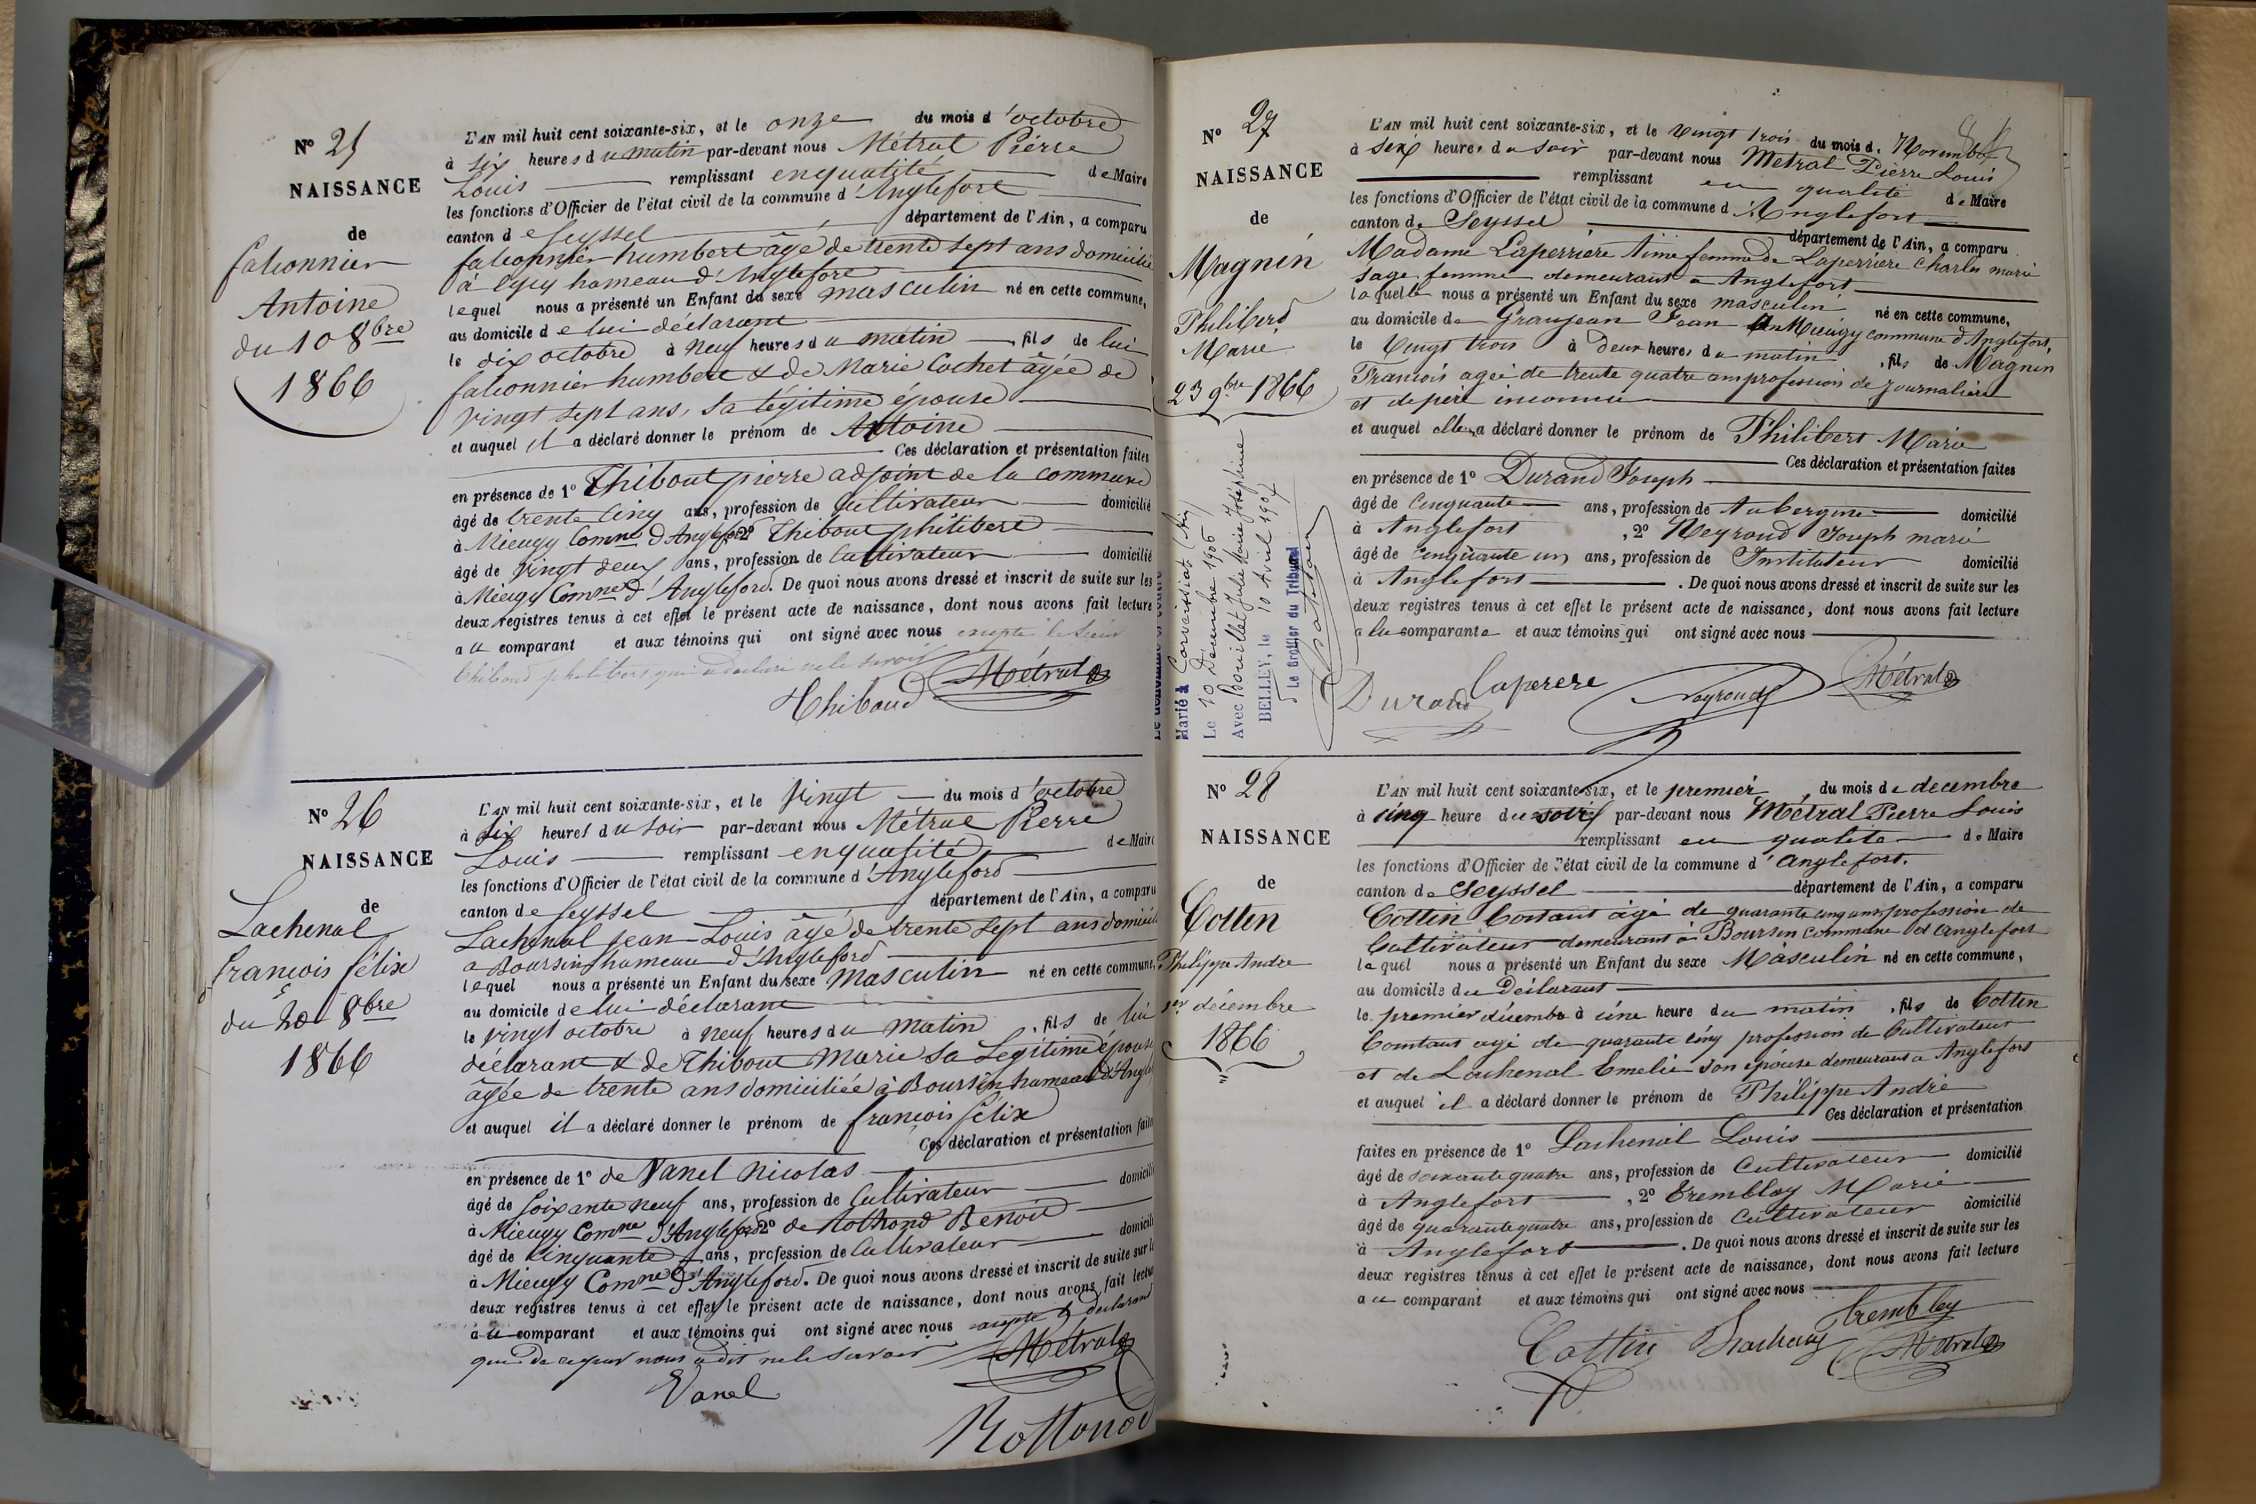 N° 25
NAISSANCE
de
falconnier
Antoine
du 10 8bre
1866
L'AN mil huit cent soixante-six, et le onze du mois d'octobre
à six heures du matin par-devant nous Métral Pierre
Louis remplissant en qualité de Maire
les fonctions d'Officier de l'état civil de la commune d'Anglefort
canton de Seyssel département de l'Ain, a comparu
falconnier humbert âgé de trente sept ans domicilié
à hameau d'Anglefort
lequel nous a présenté un Enfant du sexe masculin né en cette commune,
au domicile de lui déclarant
le dix octobre à neuf heures du matin fils de lui
falconnier humbert & de Marie Cochet âgée de
vingt sept ans, sa légitime épouse
et auquel il a déclaré donner le prénom de Antoine
Ces déclaration et présentation faites
en présence de 1° Thibout pierre adjoint de la commune
âgé de trente cinq ans, profession de Cultivateur domicilié
à Mieugy Comne d'Angleford 2° Thibout philibert
âgé de vingt deux ans, profession de Cultivateur domicilié
à Mieugy Comne d'Angleford. De quoi nous avons dressé et inscrit de suite sur les
deux registres tenus à cet effet le présent acte de naissance, dont nous avons fait lecture
au comparant et aux témoins qui ont signé avec nous excepté le sieur
thiboud philibert qui a déclaré ne le savoir
Thiboud Métral
N° 26
NAISSANCE
de
Lachenal
francois félix
du 20 8bre
1866
L'AN mil huit cent soixante-six, et le vingt du mois d'octobre
à six heures du soir par-devant nous Métral Pierre
Louis remplissant en qualité de Maire
les fonctions d'Officier de l'état civil de la commune d'Angleford
canton de Seyssel département de l'Ain, a comparu
Lachenal jean-Louis âgé de trente sept ans domicilié
a Boursin hameau d'Angleford
lequel nous a présenté un Enfant du sexe masculin né en cette commune,
au domicile de lui déclarant
le vingt octobre à neuf heures du matin, fils de lui
déclarant & de Thibout Marie sa Légitime épouse
âgée de trente ans domiciliée à Boursin hameau d'Anglef
et auquel il a déclaré donner le prénom de francois félix
Ces déclaration et présentation faites
en présence de 1° de Vanel Nicolas
âgé de soixante neuf ans, profession de Cultivateur domicilié
à Mieugy Comne d'Angleford 2° de Rottond Benoit
âgé de cinquante ans, profession de Cultivateur domicilié
à Mieugy Comne d'Angleford. De quoi nous avons dressé et inscrit de suite sur les
deux registres tenus à cet effet le présent acte de naissance, dont nous avons fait lecture
au comparant et aux témoins qui ont signé avec nous excepté le déclarant
qui de ce nous a dit ne le savoir
Métral
Vanel
Rottond
N° 27
NAISSANCE
de
Magnin
Philiberd
Marie
23 9bre 1866
Marié à
Le 10 Decembre 1906
Avec Bouillet Julie Marie Joséphine
BELLEY, le 10 Avril 1907
Le Greffier du Tribunal
L'AN mil huit cent soixante-six, et le vingt trois du mois de Novembre
à six heures du soir par-devant nous Métral Pierre Louis
remplissant en qualité de Maire
les fonctions d'Officier de l'état civil de la commune d'Anglefort
canton de Seyssel département de l'Ain, a comparu
Madame Laperrière Aimé femme de Laperriere Charles marie
sage femme demeurant a Anglefort
laquelle nous a présenté un Enfant du sexe masculin né en cette commune,
au domicile de Granjean Jean a Mieugy commune d'Anglefort,
le vingt trois à deux heures du matin, fils de Magnin
Francois agée de trente quatre ans profession de journalière
et de père inconnu
et auquel elle a déclaré donner le prénom de Philibert Marie
Ces déclaration et présentation faites
en présence de 1° Durand Joseph
âgé de cinquante ans, profession de Aubergiste domicilié
à Anglefort, 2° Neyroud Joseph marie
âgé de cinquante un ans, profession de Instituteur domicilié
à Anglefort. De quoi nous avons dressé et inscrit de suite sur les
deux registres tenus à cet effet le présent acte de naissance, dont nous avons fait lecture
a la comparante et aux témoins qui ont signé avec nous
Durand Laperere Neyroud Métral
N° 28
NAISSANCE
de
Cottin
Philippe André
1er décembre
1866
L'AN mil huit cent soixante-six, et le premier, du mois de decembre
à cinq heure du soir par-devant nous Métral Pierre Louis
remplissant en qualité de Maire
les fonctions d'Officier de l'état civil de la commune d'Anglefort.
canton de Seyssel département de l'Ain, a comparu
Cottin Contant âgé de quarante cinq ans profession de
Cultivateur demeurant à Boursin commune d'Anglefort
lequel nous a présenté un Enfant du sexe Masculin né en cette commune,
au domicile du Déclarant
le premier décembre à une heure du matin, fils de Cottin
Contant agé de quarante cinq profession de Cultivateur
et de Lachenal Emélie son épouse demeurant a Anglefort
et auquel il a déclaré donner le prénom de Philippe André
Ces déclaration et présentation
faites en présence de 1° Lachenal Louis
âgé de soixante quatre ans, profession de Cultivateur domicilié
à Anglefort, 2° Tremblay Marie
âgé de quarante quatre ans, profession de Cultivateur domicilié
à Anglefort. De quoi nous avons dressé et inscrit de suite sur les
deux registres tenus à cet effet le présent acte de naissance, dont nous avons fait lecture
au comparant et aux témoins qui ont signé avec nous
Cottin Trembley Métral